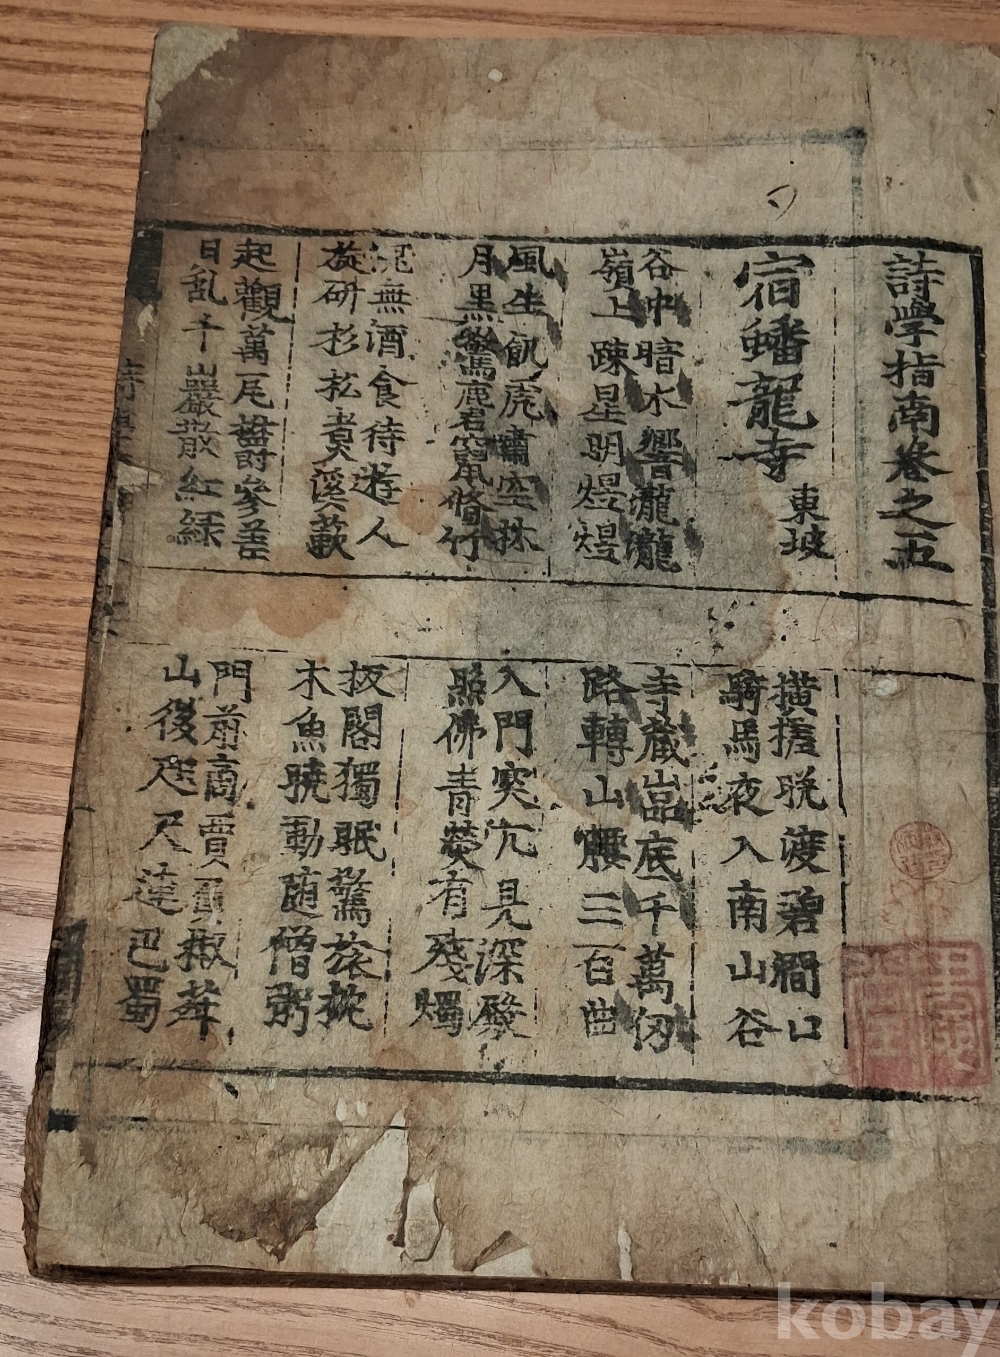 詩學指南卷之五
宿蟠龍寺 東坡
橫搓晩渡碧澗口
騎馬夜入南山谷
谷中暗水響瀧瀧
嶺上踈星明煜煜
寺藏嵓底千萬仭
路轉山腰三百曲
風生飢虎嘯空林
月黑驚麏竄脩竹
入門突兀見深殿
照佛青熒有殘燭
愧無酒食待遊人
旋研杉松煑溪蔌
板閣獨眠驚旅枕
木魚曉動随僧粥
起觀萬瓦鬱參差
目亂千巖散紅綠
門前商賈負椒荈
山後咫尺蓮巴蜀
kobay